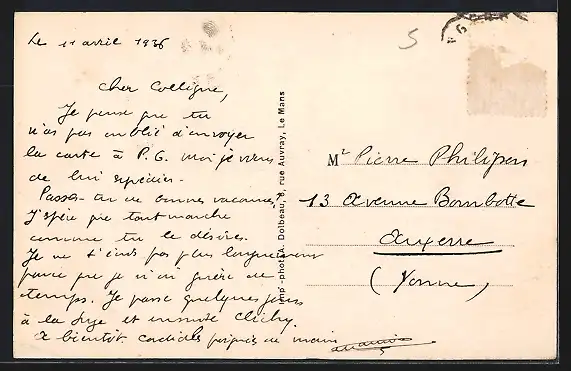 Le 11 avril 1936
5
Cher Collègue,
Je pense que tu
n'as pas oublié d'envoyer
la carte à P. G. Moi je viens
de lui expédier.
Passes-tu de bonnes vacances ?
J'espère que tout marche
comme tu le désires.
Je ne t'écris pas plus longuement
parce que je n'ai guère de
temps. Je passe quelques jours
à la et ensuite Clichy.
A bientôt cordiales poignées de main
Imp.-phot. A. Dolbeau, 8, rue Auvray, Le Mans
Mr Pierre Philipon
13 Avenue Bombotte
Auxerre
(Yonne)